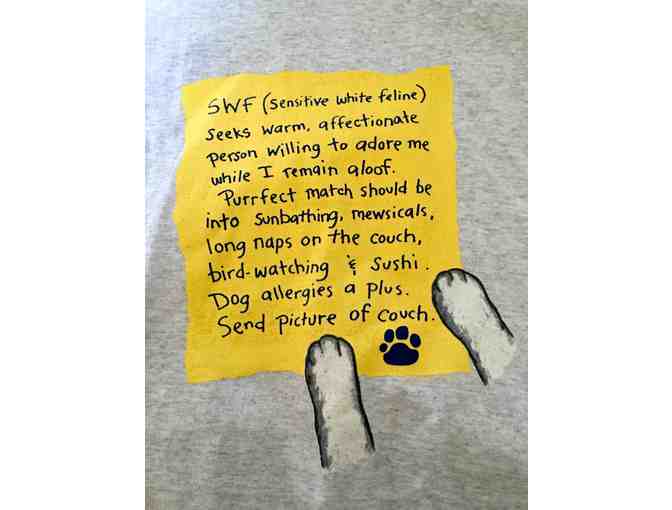 SWF (sensitive white feline)
seeks warm, affectionate
person willing to adore me
while I remain aloof.
Purrfect match should be
into sunbathing, mewsicals,
long naps on the couch,
bird-watching & Sushi.
Dog allergies a plus.
Send picture of couch.